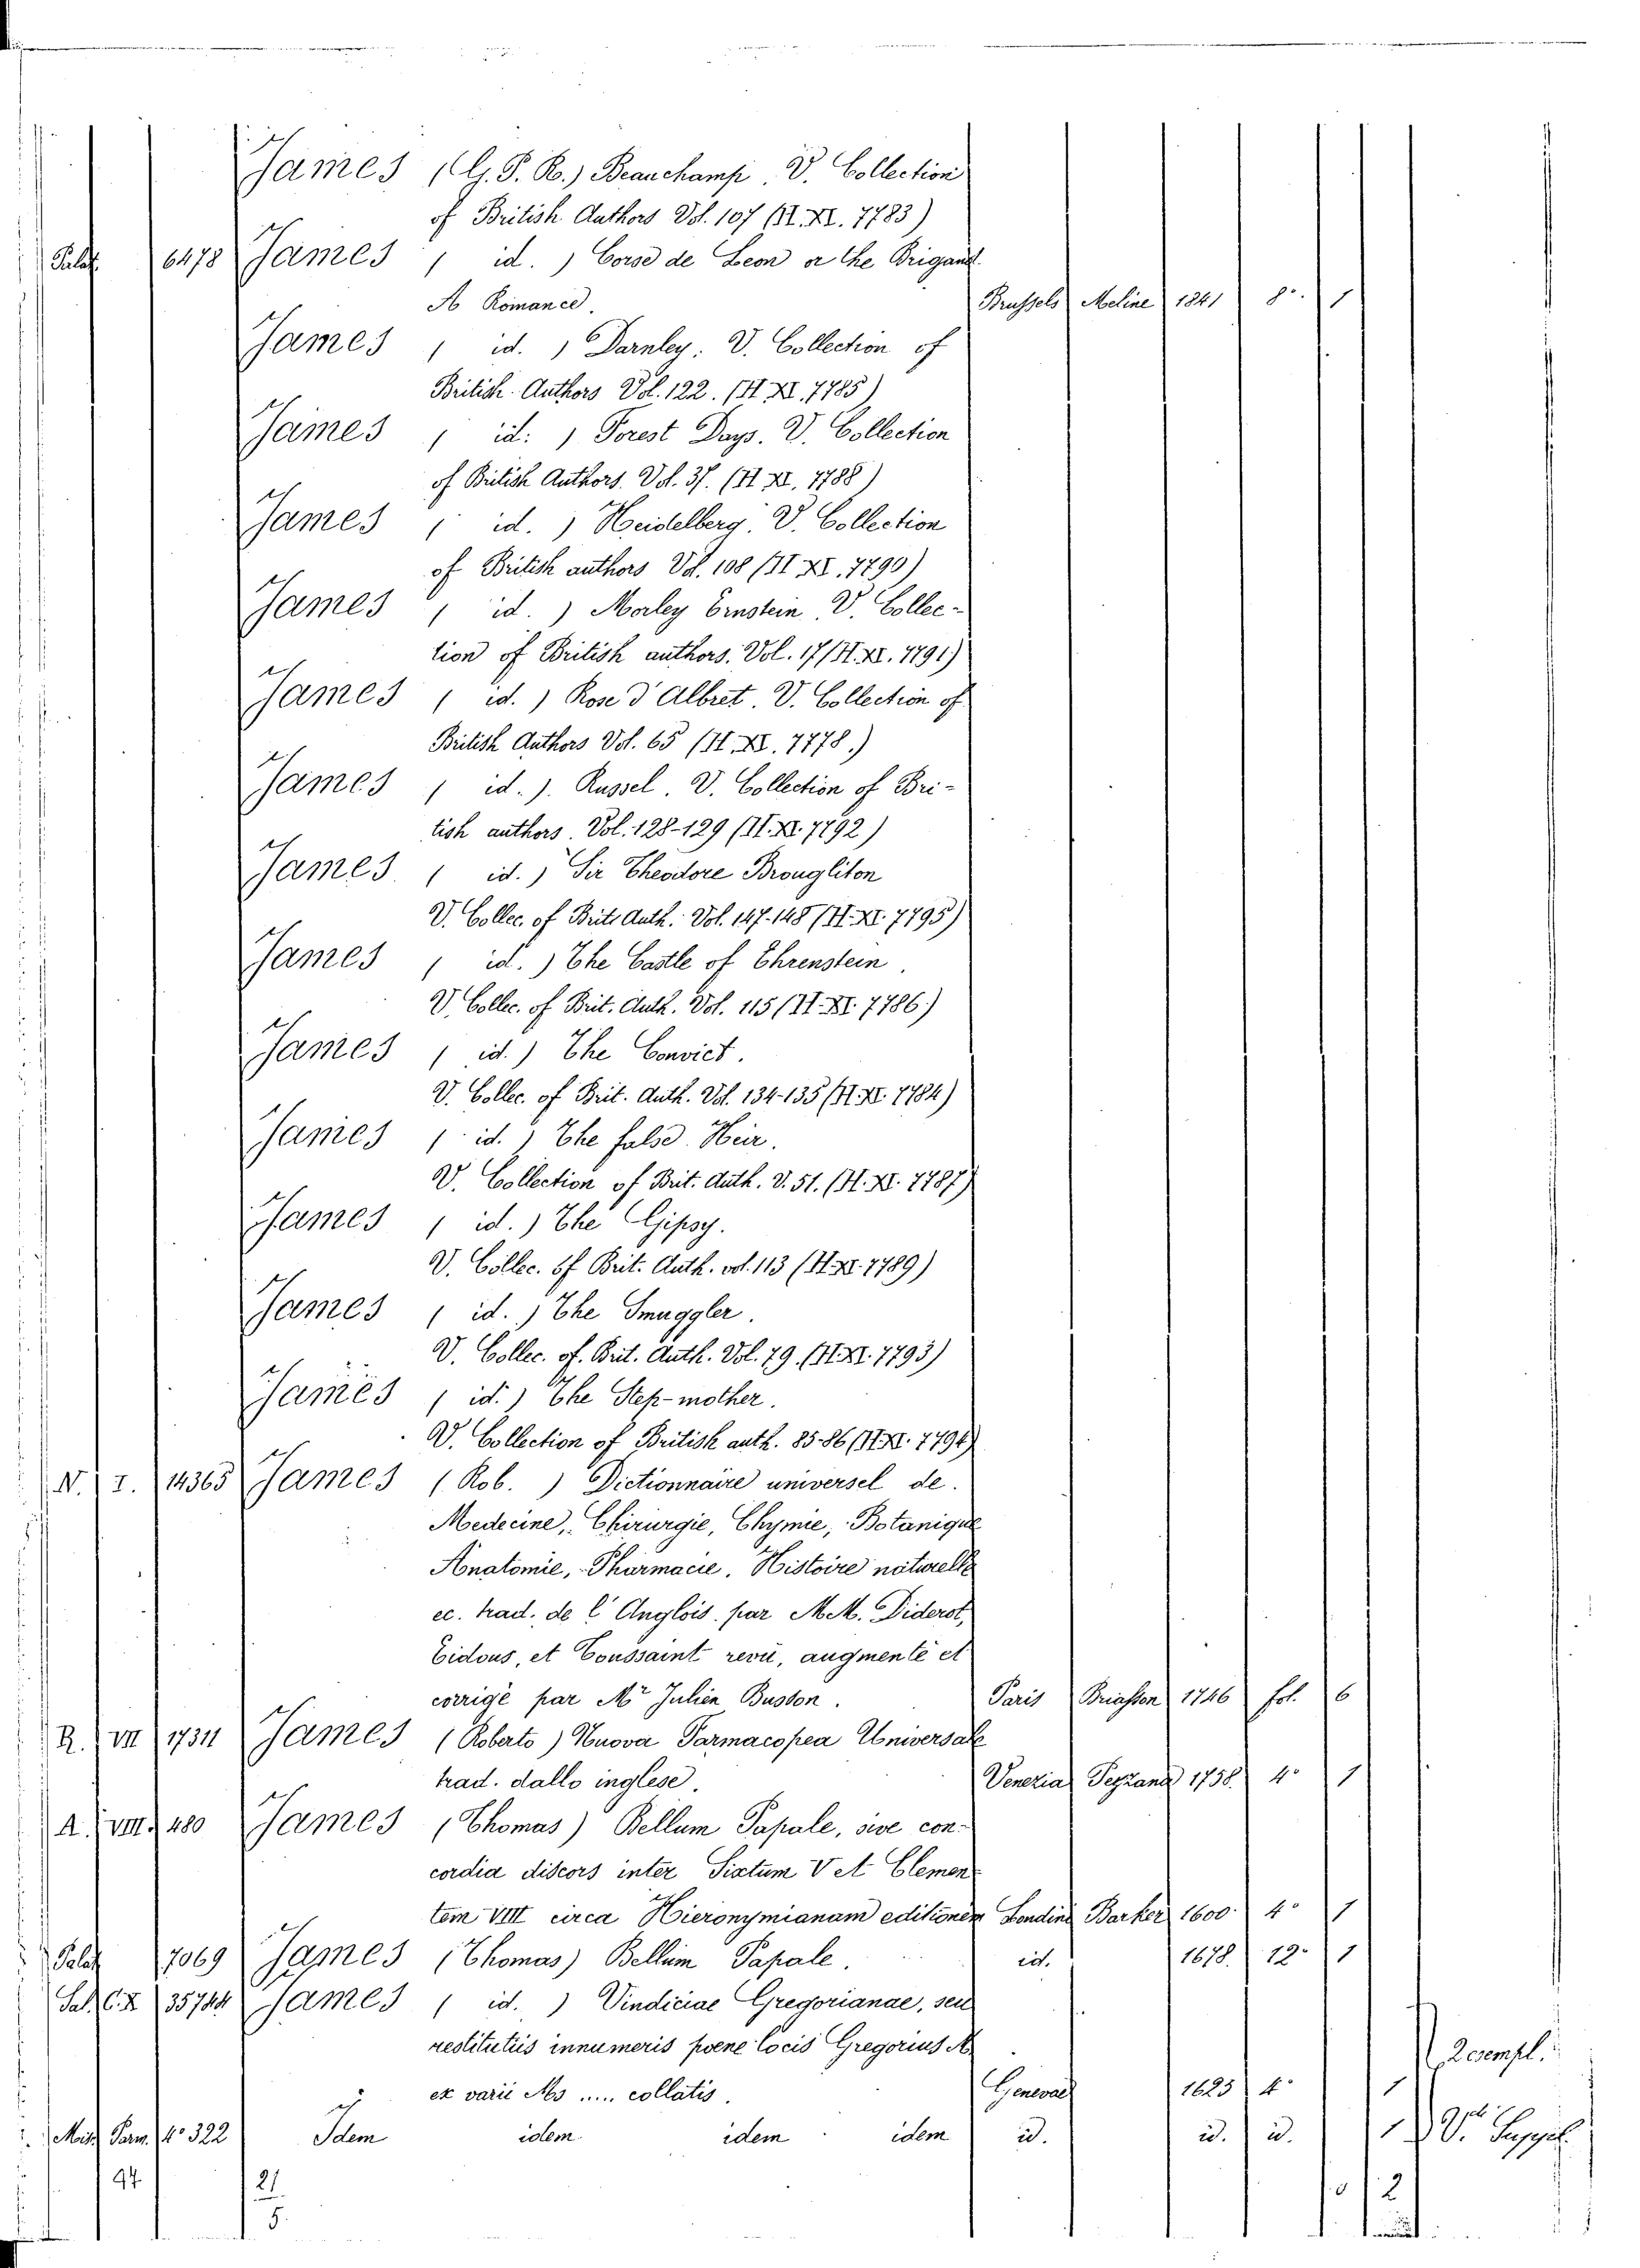 James (G. P. R.) Beauchamp. V. Collection
of British Authors Vol. 107 (II. XI. 7783)
Palat. 6478 James ( id. ) Corse de Leon or the Brigand
A Romance. Brussels Meline 1841 8°. 1
James ( id. ) Darnley. V. Collection of
British Authors Vol. 122. (II XI. 7785)
James ( id. ) Forest Days. V. Collection
of British Authors. Vol. 37. (II XI. 7788)
James ( id. ) Heidelberg. V. Collection
of British authors Vol. 108 (II XI. 7790)
James ( id. ) Morley Ernstein. V. Collec-
tion of British authors. Vol. 17 (II. XI. 7791)
James ( id. ) Rose d'Albret. V. Collection of
British Authors Vol. 65 (II. XI. 7778.)
James ( id. ). Russel. V. Collection of Bri-
tish authors. Vol. 128-129 (II. XI. 7792)
James ( id. ) Sir Theodore Brougliton
V. Collec. of Brit. Auth. Vol. 147-148 (II. XI. 7795)
James ( id. ) The Castle of Ehrenstein.
V. Collec. of Brit. Auth. Vol. 115 (II. XI. 7786)
James ( id. ) The Convict.
V. Collec. of Brit. Auth. Vol. 134-135 (II. XI. 7784)
James ( id. ) The false Heir.
V. Collection of Brit. Auth. V. 51. (II. XI. 7787)
James ( id. ) The Gipsy.
V. Collec. of Brit. Auth. vol. 113 (II. XI. 7789)
James ( id. ) The Smuggler.
V. Collec. of. Brit. Auth. Vol. 79. (II. XI. 7793)
James ( id. ) The Step-mother.
V. Collection of British auth. 85-86 (II XI. 7794)
N. I. 14365 James (Rob. ) Dictionnaire universel de
Medecine, Chirurgie, Chymie, Botanique
Anatomie, Pharmacie, Histoire naturelle
ec. trad. de l'Anglois par M.M. Diderot,
Eidous, et Toussaint revû, augmenté et
corrigé par Mr Julien Busson. Paris Briasson 1746 fol. 6
R. VII 17311 James (Roberto) Nuova Farmacopea Universale
trad. dallo inglese. Venezia Pezzana 1758. 4° 1
A. VIII. 480 James (Thomas) Bellum Papale, sive con-
cordia discors inter Sixtum V et Clemen
tem VIII circa Hieronymianam editionem Londini Barker 1600 4° 1
Palat 7069 James (Thomas) Bellum Papale. id. 1678. 12° 1
Sal. C.X 35744 James ( id. ) Vindiciae Gregorianae, seu
restitutus innumeris poene locis Gregorius M. 2 esempl.
ex varii Ms ..... collatis. Genevae 1625 4° 1
Misc. Parm. 4° 322 Idem idem idem idem id. id. id. 1 V. Suppl.
94 21 0 2
5.